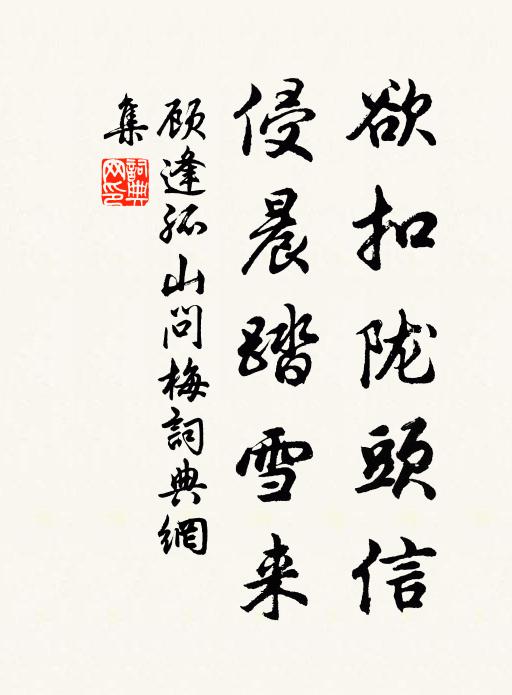 欲扣陇頭信
侵晨踏雪来
顾逢孤山问梅詞典網
集
詞典网印